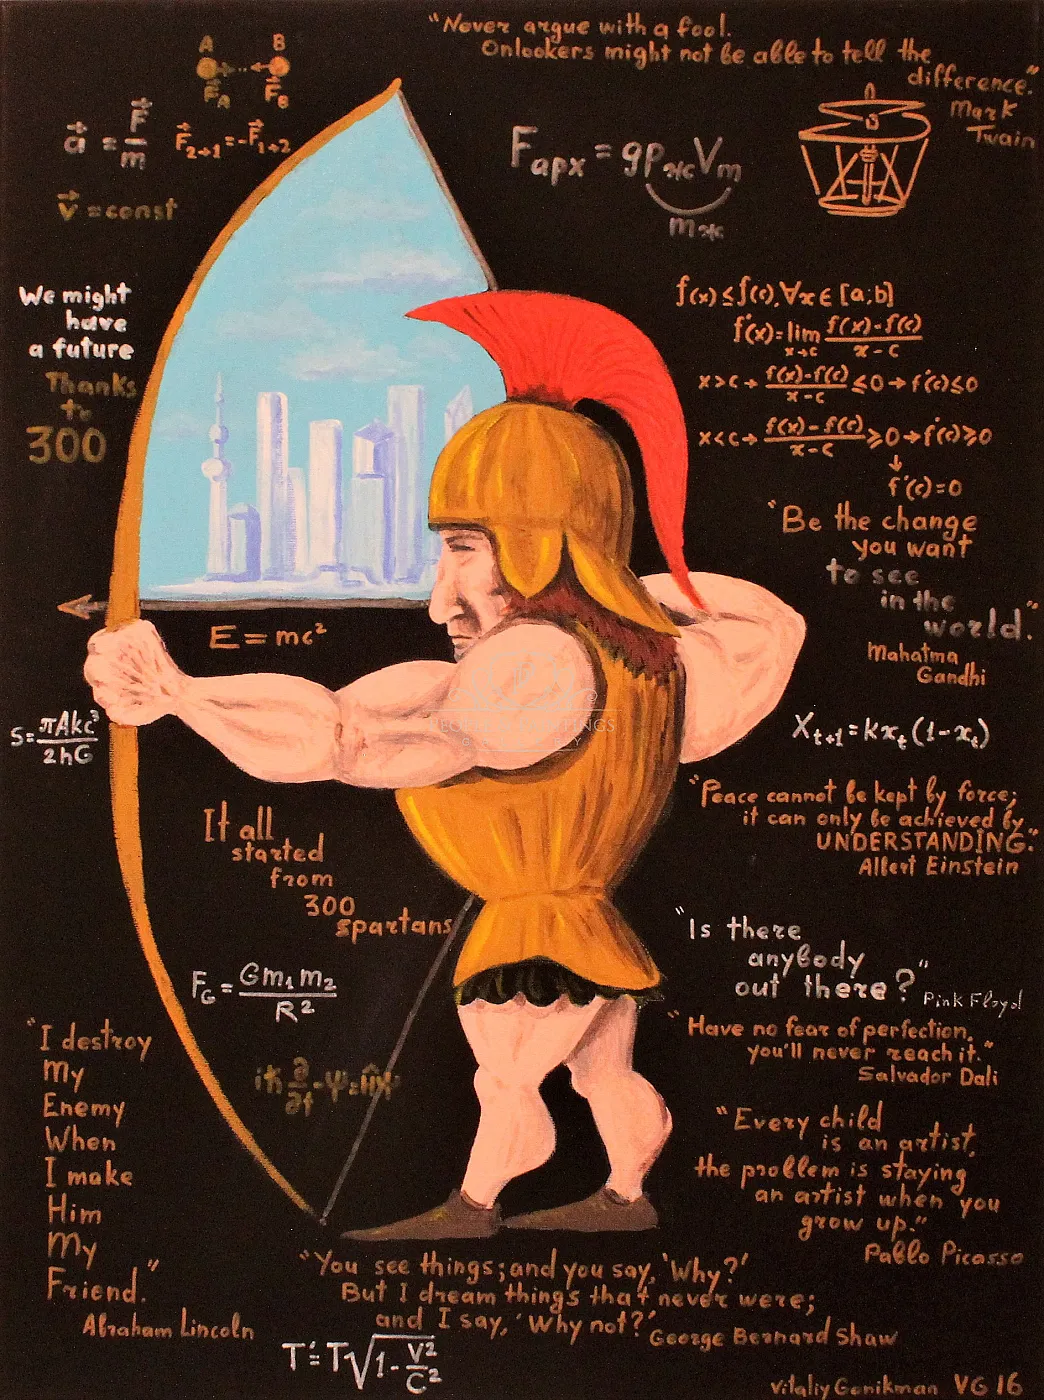 "Never argue with a fool.
Onlookers might not be able to tell the
difference."
Mark
Twain
A B
F⃗A F⃗B
a⃗ = F⃗/m
F⃗2→1 = -F⃗1→2
v⃗ = const
Fарх = gρжVт
mж
We might
have
a future
Thanks
to
300
f(x) ≤ f(c), ∀x ∈ [a;b]
f'(x) = lim x→c (f(x) - f(c))/(x - c)
x>c → (f(x) - f(c))/(x - c) ≤ 0 → f'(c) ≤ 0
x<c → (f(x) - f(c))/(x - c) ≥ 0 → f'(c) ≥ 0
↓
f'(c) = 0
"Be the change
you want
to see
in the
world."
Mahatma
Gandhi
E = mc²
S = πAkc³/2hG
Xt+1 = kxt(1-xt)
"Peace cannot be kept by force;
it can only be achieved by
UNDERSTANDING."
Albert Einstein
It all
started
from
300
spartans
"Is there
anybody
out there?"
Pink Floyd
FG = Gm1m2/R²
"Have no fear of perfection,
you'll never reach it."
Salvador Dali
"I destroy
My
Enemy
When
I make
Him
My
Friend."
Abraham Lincoln
"Every child
is an artist,
the problem is staying
an artist when you
grow up."
Pablo Picasso
"You see things; and you say, 'Why?'
But I dream things that never were;
and I say, 'Why not?'
George Bernard Shaw
T' = T√(1 - V²/C²)
Vitaliy Gonikman VG 16